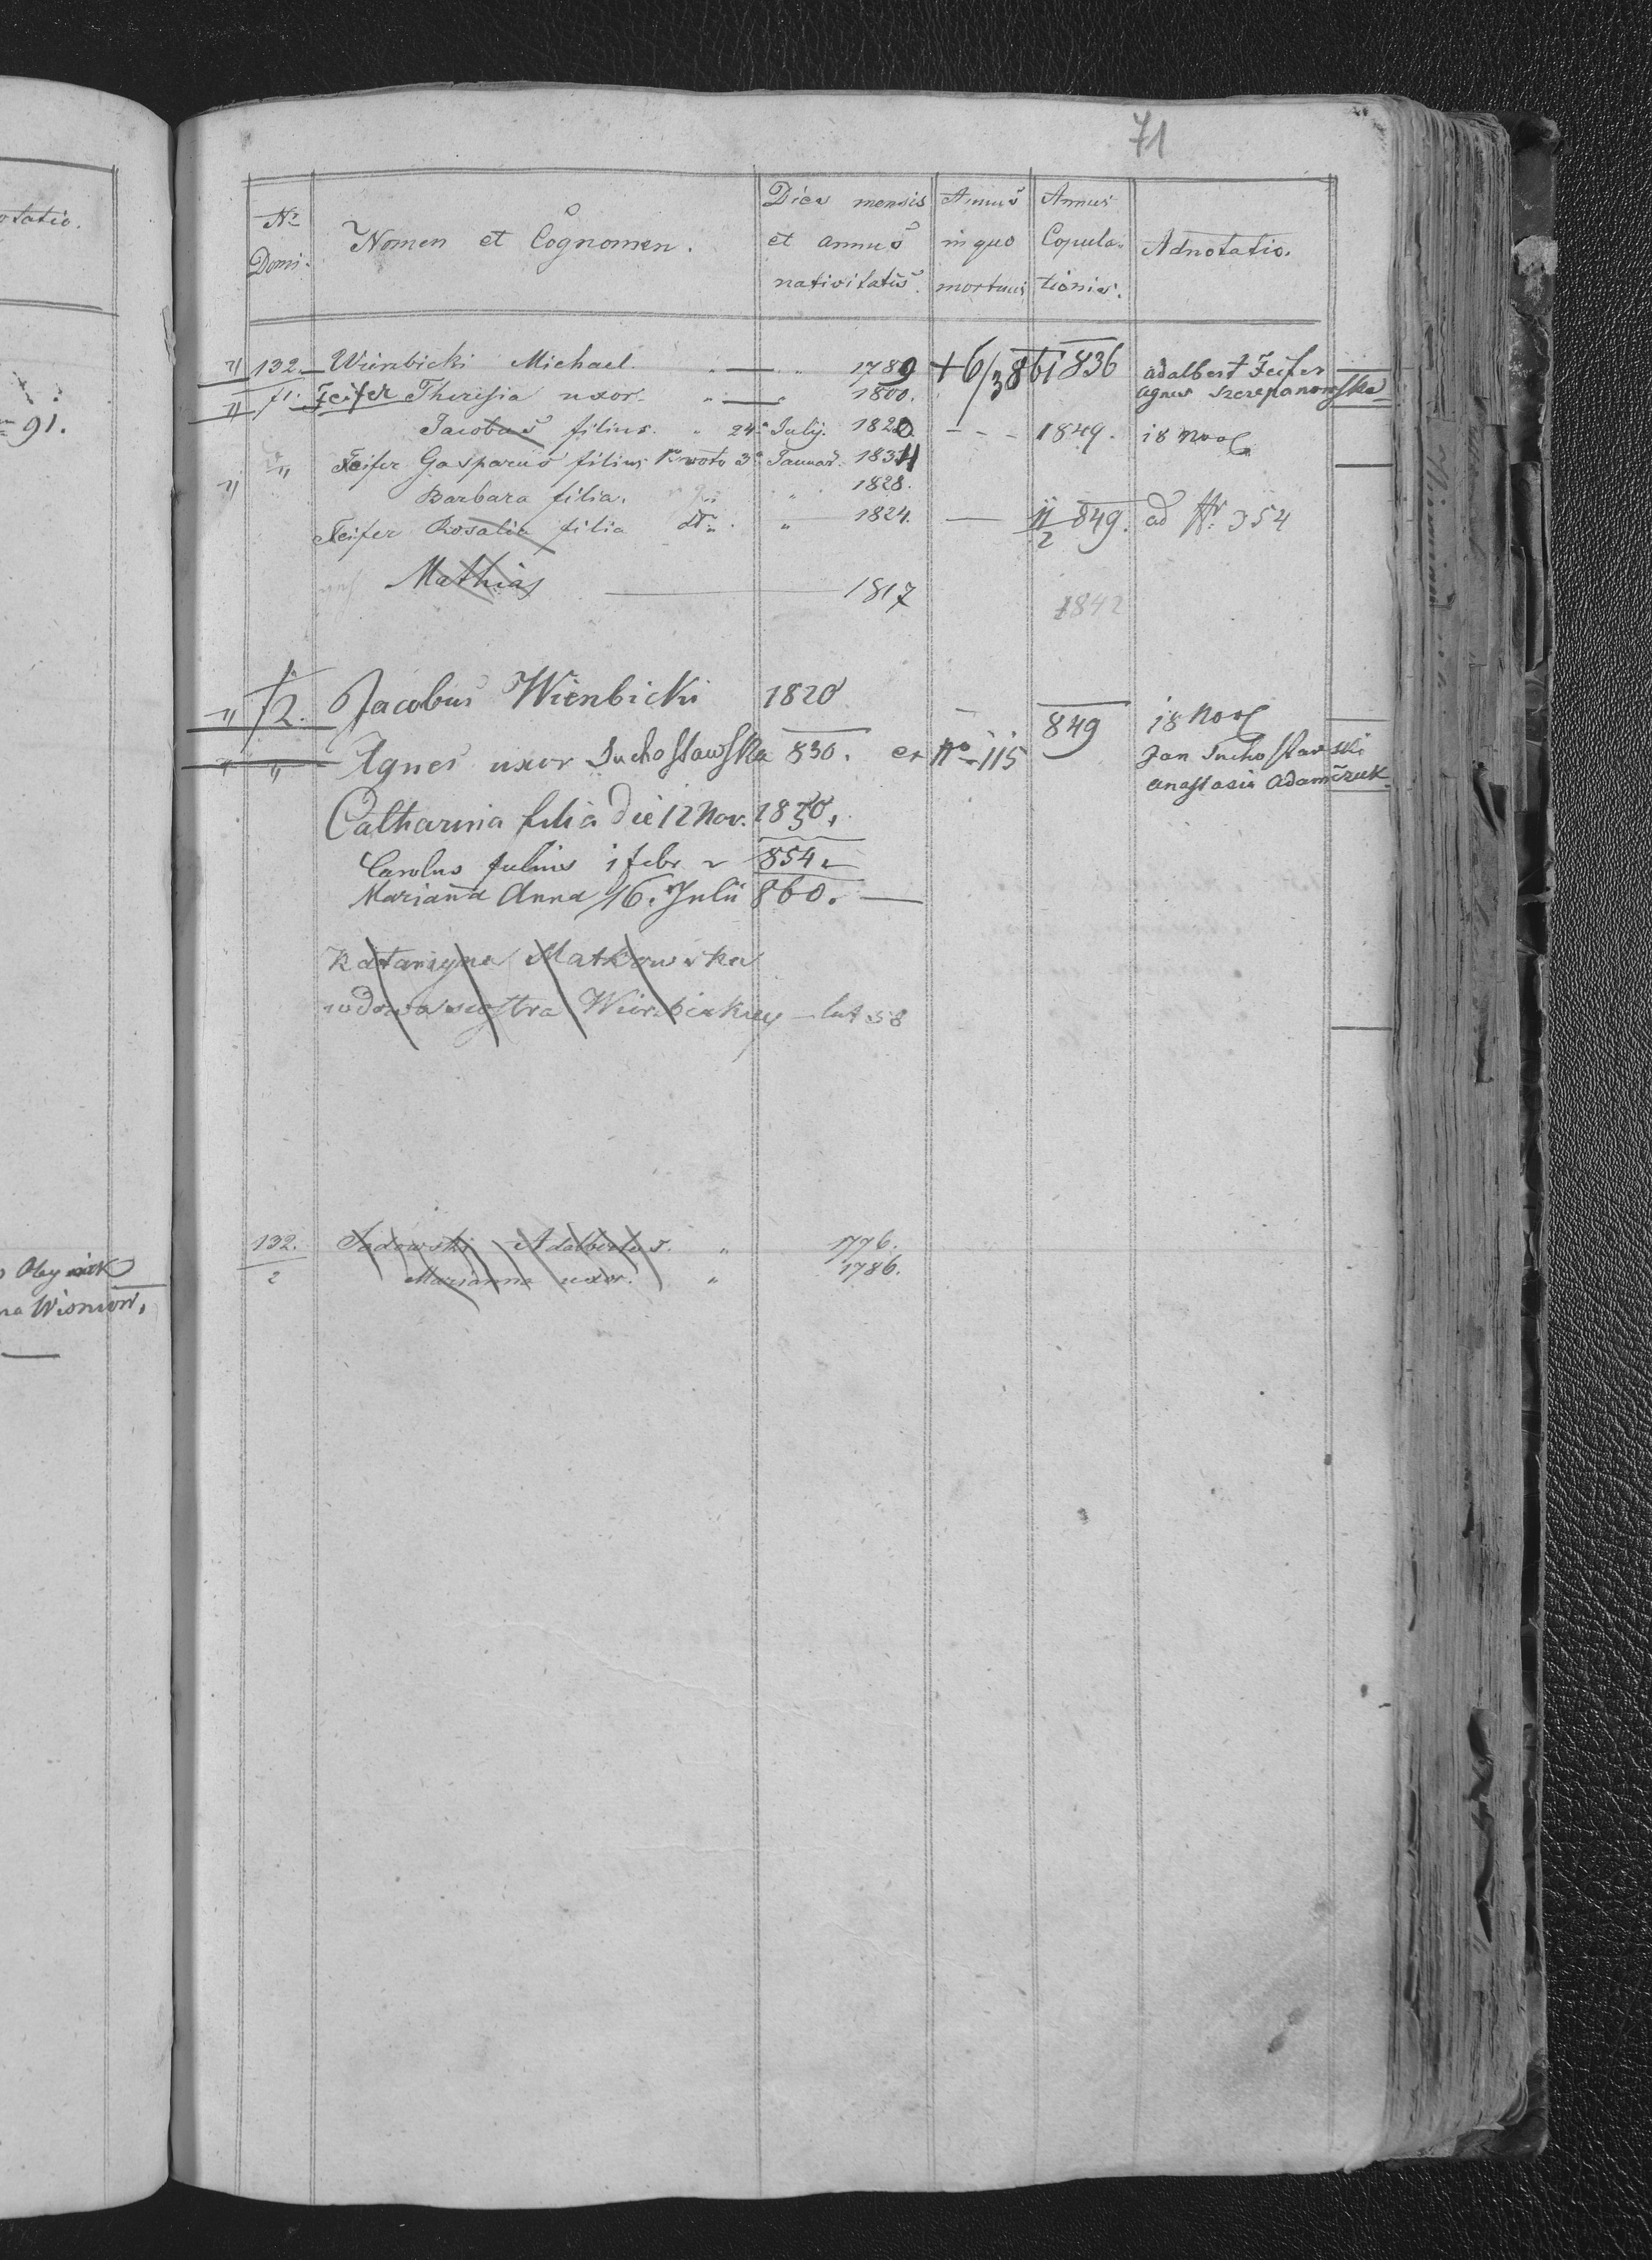 71
Nr Domi. Nomen et Cognomen. Dies mensis et annus nativitatis. Annus in quo mortuus Annus Copulationis. Adnotatio.
132. Wienbicki Michael. 1789 +6/3 861 836 adalbert Feifer
/1. Feifer Theresia uxor. 1800. Agnes Szczepanowska
Jacobus filius. 24a July. 1820 - - - 1849. 18 Nov
" Feifer Gasparus filius 1o voto 3a Januar. 1834
Barbara filia. " 1828.
Feifer Rosalia filia dt " 1824. — 11/2 849. ad Nr 354
Mathias — 1817 1842
/2. Jacobus Wienbicki 1820 — 849 18 Nov
" " Agnes uxor Suchosławska 830. ex No 115 Jan Suchosławski
anastasia Adamczuk
Catharina filia die 12 Nov. 1850.
Carolus Julius 1 febr 854
Marianna Anna 16. Julii 860. —
Katarzyna Matkowska
wdowa siostra Wierbickiey — lat 58
132. Sadowski Adalbertus. " 1776.
2 Marianna uxor. " 1786.
otatio.
91.
Oleynik
na Wisniow.